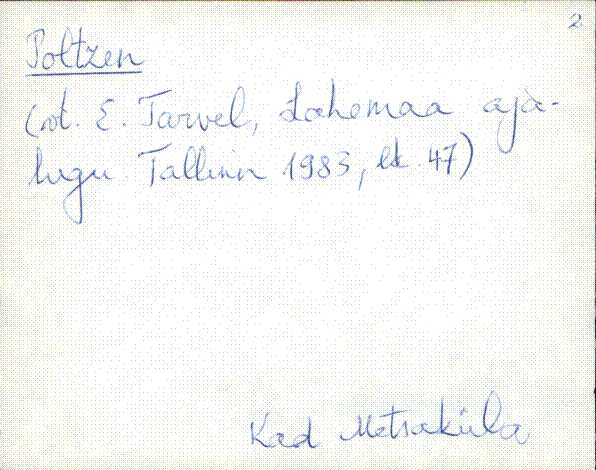 2
Poltzen
(vt. E. Tarvel, Lahemaa aja-
lugu Tallinn 1983, lk. 47)
Kad Metsaküla